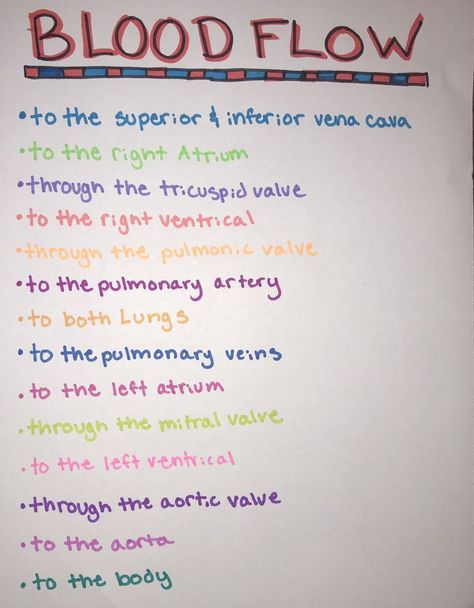 BLOOD FLOW
•to the superior & inferior vena cava
•to the right Atrium
•through the tricuspid valve
•to the right ventrical
•through the pulmonic valve
•to the pulmonary artery
•to both Lungs
•to the pulmonary veins
•to the left atrium
•through the mitral valve
•to the left ventrical
•through the aortic valve
•to the aorta
•to the body